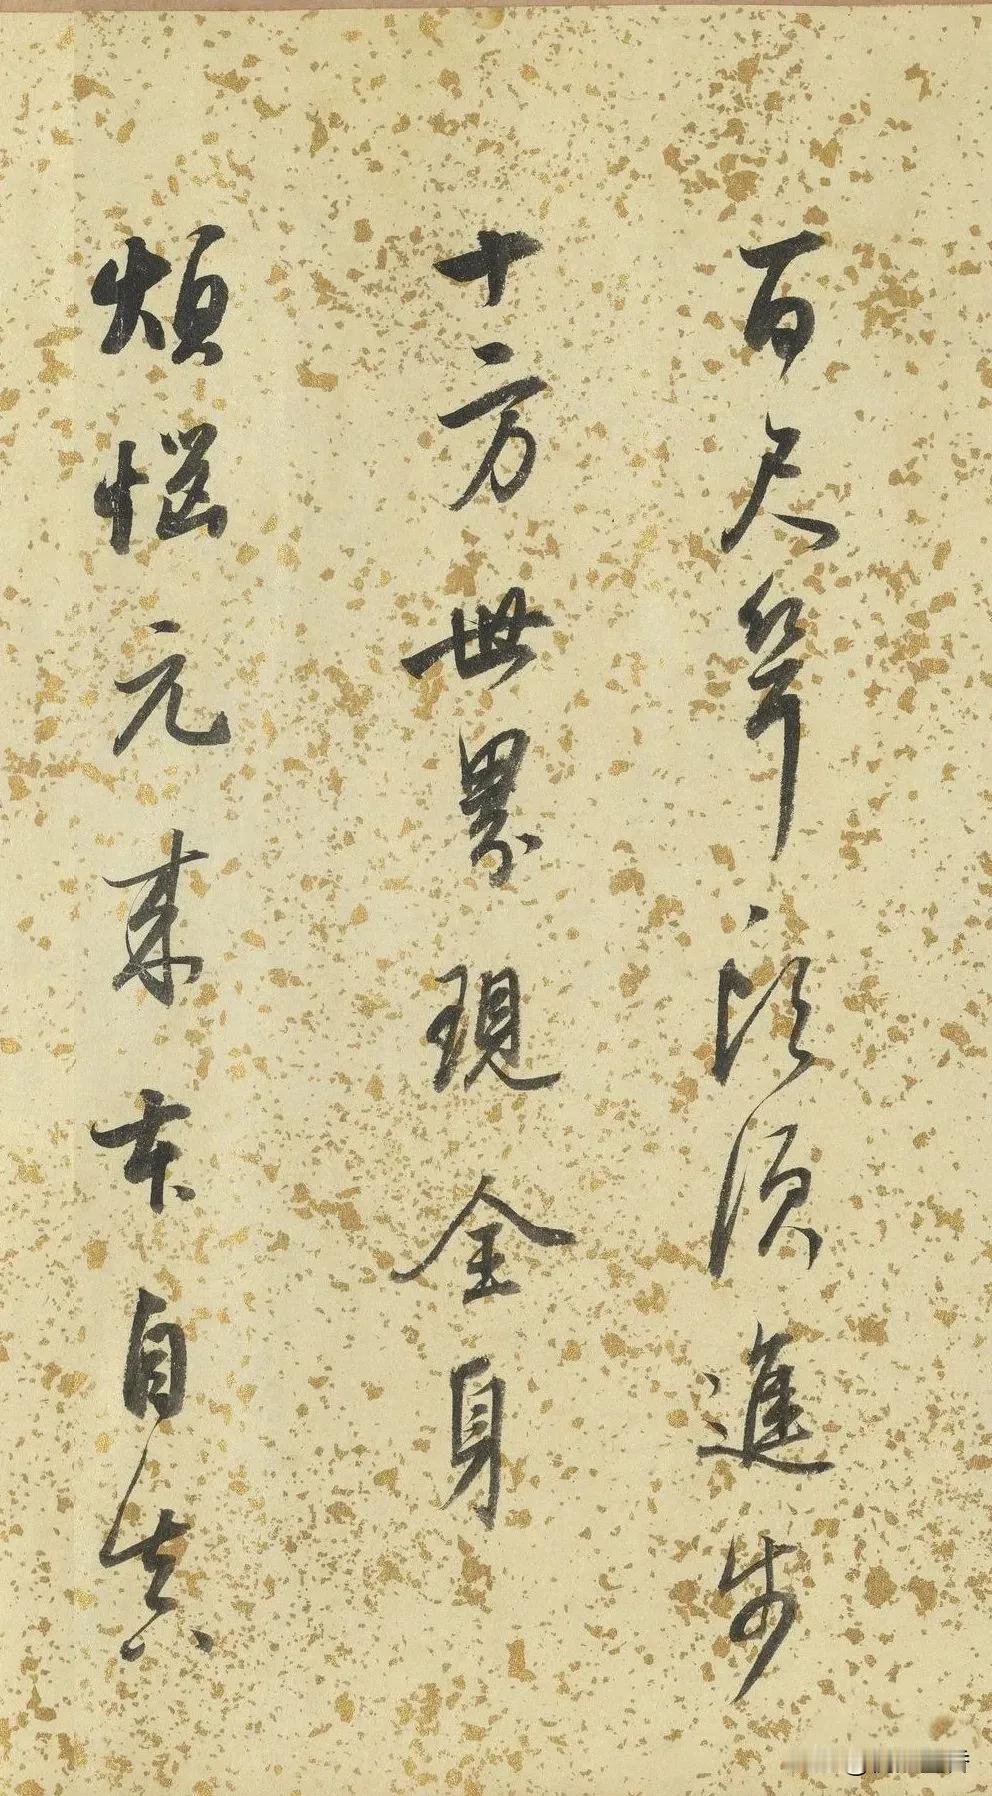 百尺竿頭須進步
十方世界現全身
煩惱元來本自真